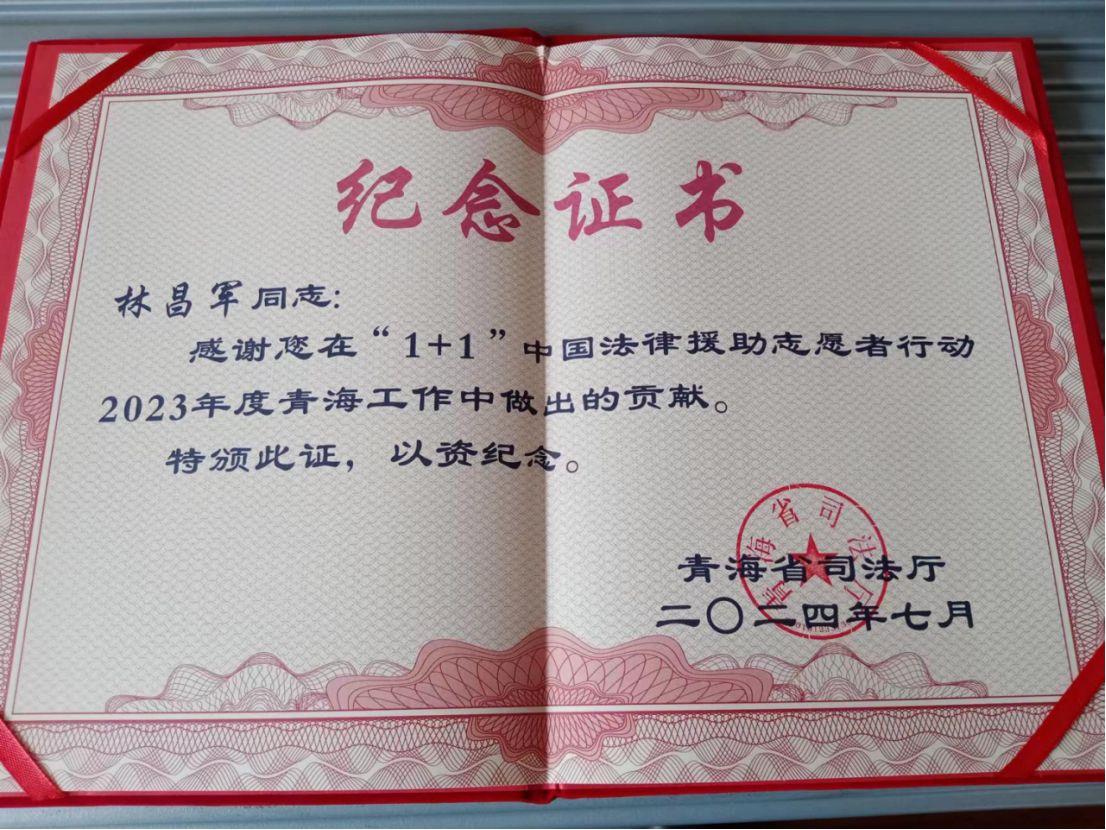 纪念证书
林昌军同志：
感谢您在“1+1”中国法律援助志愿者行动
2023年度青海工作中做出的贡献。
特颁此证，以资纪念。
青海省司法厅
青海省司法厅
二〇二四年七月